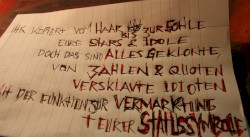 IHR KOPIERT VOM HAAR BIS ZUR SOHLE
EURE STARS & IDOLE
DOCH DAS SIND ALLES GEKLONTE
VON ZAHLEN & QUOTEN
VERSKLAVTE IDIOTEN
MIT DER FUNKTION ZUR VERMARKTUNG
EURER STATUSSYMBOLE